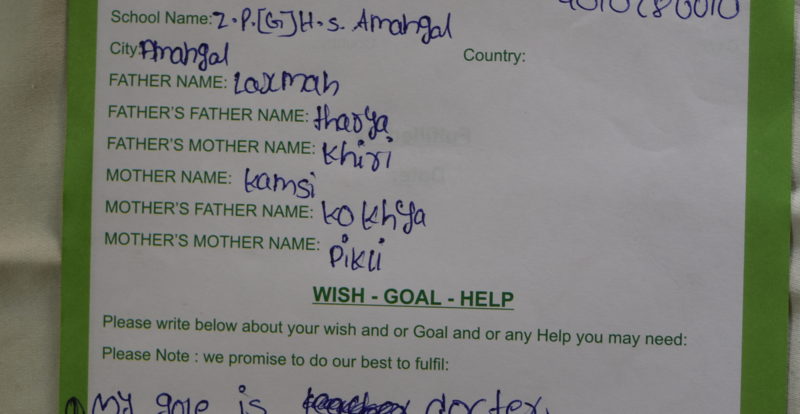 School Name: Z.P.[G]H.S. Amangal
City: Amangal Country:
FATHER NAME: Laxman
FATHER'S FATHER NAME: tharya
FATHER'S MOTHER NAME: Khiri
MOTHER NAME: Kamsi
MOTHER'S FATHER NAME: Kokhya
MOTHER'S MOTHER NAME: Pikli
WISH - GOAL - HELP
Please write below about your wish and or Goal and or any Help you may need:
Please Note : we promise to do our best to fulfil:
My gole is docter.